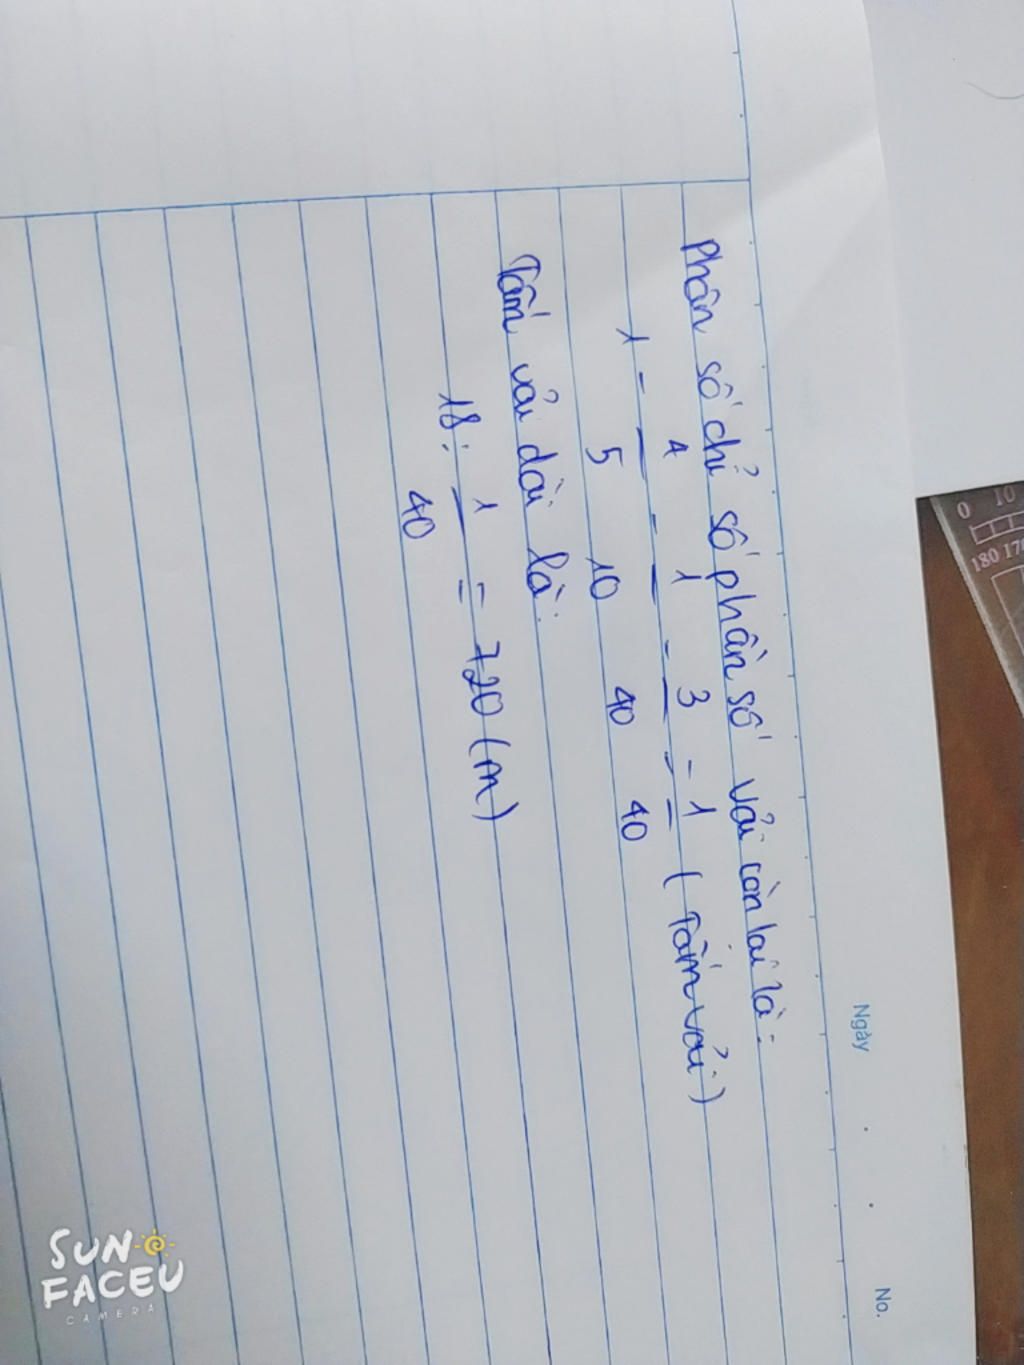 Ngày . . No.
Phân số chỉ số phần số vải còn lại là:
1 - 4/5 - 1/10 - 3/40 = 1/40 (Tấm vải)
Tấm vải dài là:
18: 1/40 = 720 (m)
0 10
180 170
SUN
FACEU
CAMERA